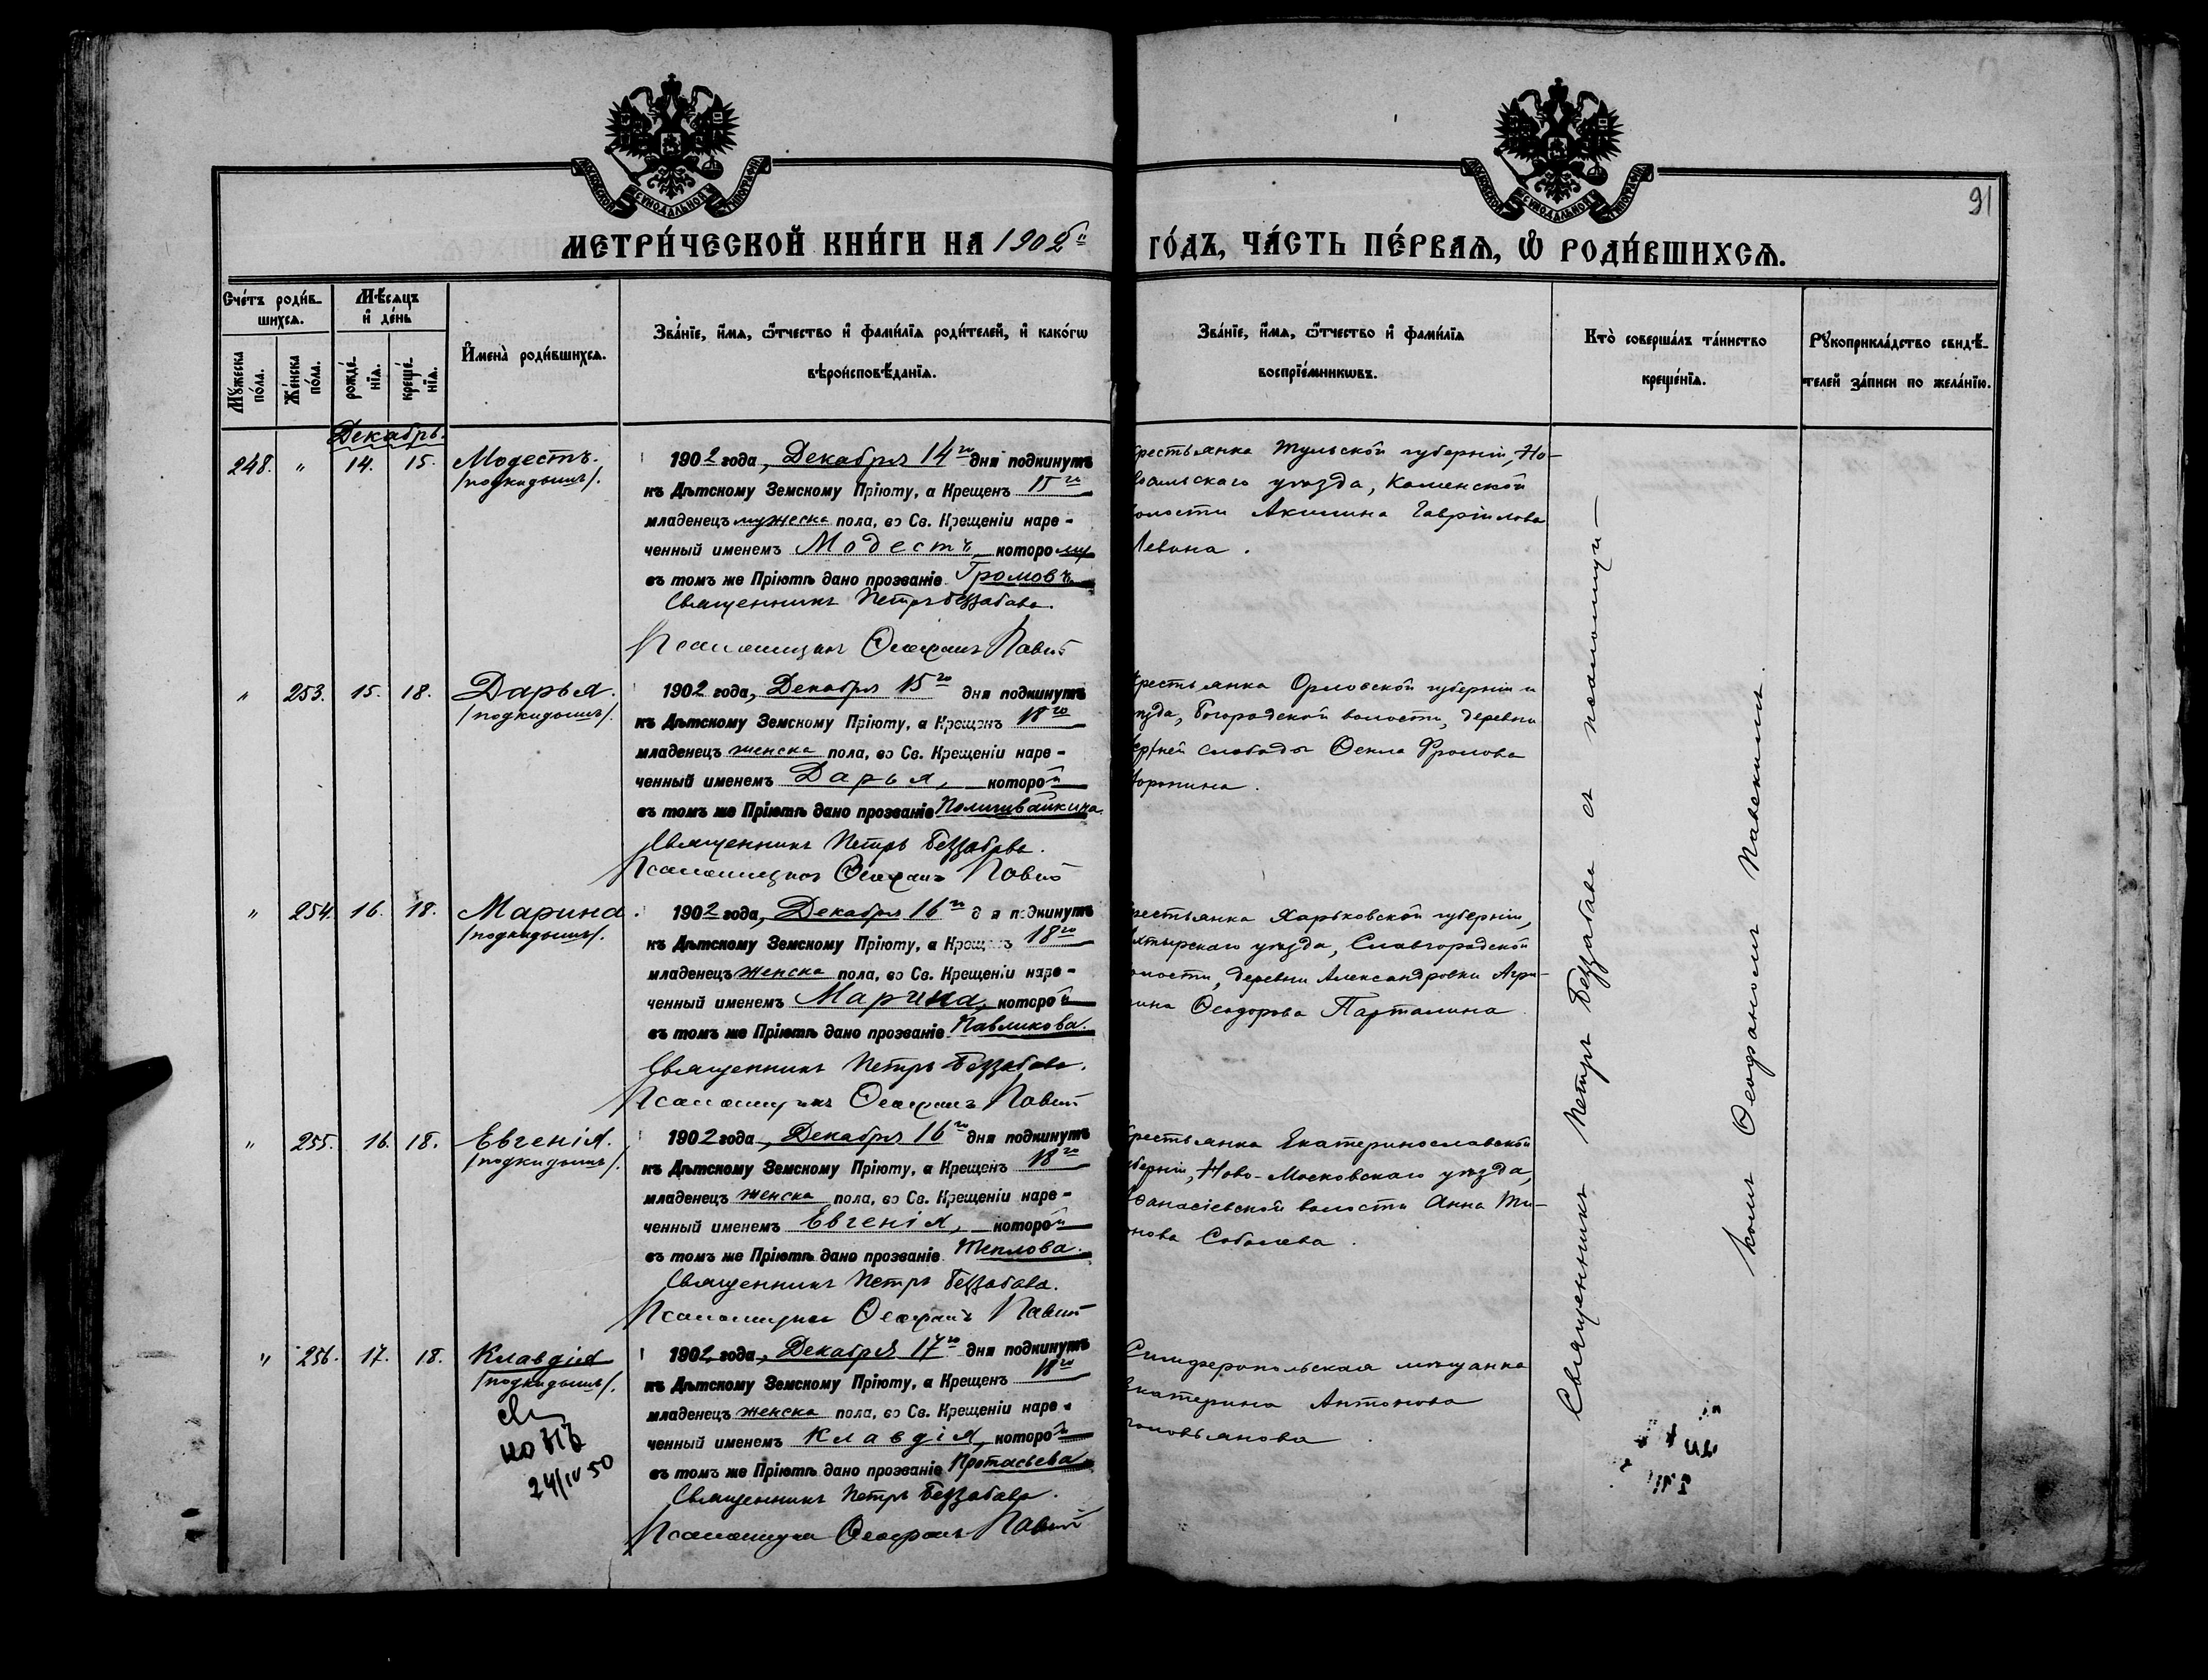 91
МОСКОВСКОЙ СѴНОДАЛЬНОЙ ТИПОГРАФІИ
МОСКОВСКОЙ СѴНОДАЛЬНОЙ ТИПОГРАФІИ
МЕТРИ́ЧЕСКОЙ КНИ́ГИ НА 1902й ГО́ДЪ, ЧА́СТЬ ПЕ́РВАѦ, Ѽ РОДИ́ВШИХСѦ.
Сче́тъ роди́вшихсѧ.
Мꙋ́жеска по́ла.
Же́нска по́ла.
Мѣ́сѧцъ и҆ де́нь
рожде́нїѧ.
креще́нїѧ.
И҆мена̀ роди́вшихсѧ.
Зва́нїе, и҆́мѧ, ѻ҆́тчество и҆ фами́лїѧ роди́телей, и҆ како́гѡ
вѣроисповѣ́данїѧ.
Зва́нїе, и҆́мѧ, ѻ҆́тчество и҆ фами́лїѧ
воспрїе́мникѡвъ.
Кто̀ соверша́лъ та́инство
креще́нїѧ.
Рꙋкоприкла́дство свидѣ́-
телей за́писи по жела́нїю.
Декабрь.
248. " 14. 15. Модестъ.
/подкидышъ/.
1902 года, Декабря 14го дня подкинутъ
къ Дѣтскому Земскому Пріюту, а Крещенъ 15го
младенецъ мужеска пола, во Св. Крещеніи наре-
ченный именемъ Модестъ, которому
въ томъ же Пріютѣ дано прозваніе Громовъ.
Священникъ Петръ Беззабава.
Псаломщикъ Ѳеофанъ
крестьянка Тульской губерніи, Но-
восильскаго уѣзда, Каменской
волости Акилина Гавріилова
Левина.
" 253. 15. 18. Дарья.
/подкидышъ/.
1902 года, Декабря 15го дня подкинутъ
къ Дѣтскому Земскому Пріюту, а Крещенъ 18го
младенецъ женска пола, во Св. Крещеніи наре-
ченный именемъ Дарья, которой
въ томъ же Пріютѣ дано прозваніе
Священникъ Петръ Беззабава.
Псаломщикъ Ѳеофанъ
крестьянка Орловской губерніи и
уѣзда, Богородской волости, деревни
слободы Ѳекла Фролова
" 254. 16. 18. Марина.
/подкидышъ/.
1902 года, Декабря 16го дня подкинутъ
къ Дѣтскому Земскому Пріюту, а Крещенъ 18го
младенецъ женска пола, во Св. Крещеніи наре-
ченный именемъ Марина, которой
въ томъ же Пріютѣ дано прозваніе Павликова.
Священникъ Петръ Беззабава.
Псаломщикъ Ѳеофанъ
крестьянка Харьковской губерніи,
Ахтырскаго уѣзда, Славгородской
волости, деревни Александровки Агри-
пина Ѳеодорова Парталина
" 255. 16. 18. Евгенія.
/подкидышъ/.
1902 года, Декабря 16го дня подкинутъ
къ Дѣтскому Земскому Пріюту, а Крещенъ 18го
младенецъ женска пола, во Св. Крещеніи наре-
ченный именемъ Евгенія, которой
въ томъ же Пріютѣ дано прозваніе Теплова.
Священникъ Петръ Беззабава.
Псаломщикъ Ѳеофанъ
крестьянка Екатеринославской
губерніи, Ново-Московскаго уѣзда,
Аѳанасіевской волости Анна Ти-
Соболева.
" 256. 17. 18. Клавдія
/подкидышъ/.
24/IV 50
1902 года, Декабря 17го дня подкинутъ
къ Дѣтскому Земскому Пріюту, а Крещенъ 18го
младенецъ женска пола, во Св. Крещеніи наре-
ченный именемъ Клавдія, которой
въ томъ же Пріютѣ дано прозваніе Протасьева
Священникъ Петръ Беззабава.
Псаломщикъ Ѳеофанъ
Симферопольская мѣщанка
Екатерина Антонова
Священникъ Петръ Беззабава съ псаломщи-
комъ Ѳеофаномъ